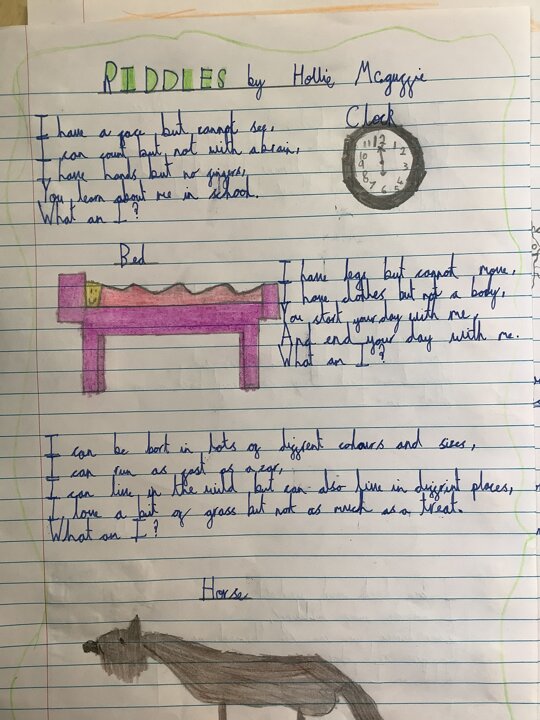 RIDDLES by Hollie Mcguzzie
Clock
I have a face but cannot see,
I can count but not with a brain,
I have hands but no fingers,
You learn about me in school.
What am I?
11 12 1
10 2
9 3
8 4
7 6 5
Bed
I have legs but cannot move,
I have clothes but not a body,
You start your day with me,
And end your day with me.
What am I?
I can be bort in lots of diffrent colours and sizes,
I can run as fast as a car,
I can live in the wild but can also live in diffrint places,
I love a bit of grass but not as much as a treat.
What am I?
Horse